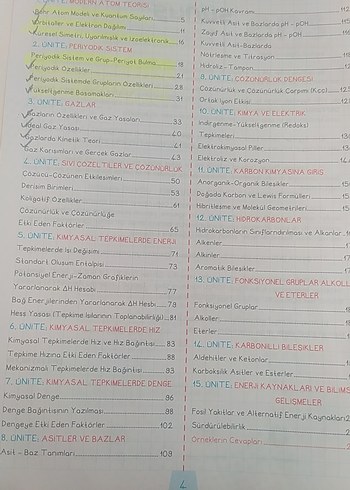 MODERN ATOM TEORİSİ
Bohr Atom Modeli ve Kuantum Sayıları 5
Orbitaller ve Elektron Dağılımı 11
Küresel Simetri, Uyarılmışlık ve İzoelektronik 16
2. ÜNİTE: PERİYODİK SİSTEM
Periyodik Sistem ve Grup-Periyot Bulma 18
Periyodik Özellikler 21
Periyodik Sistemde Grupların Özellikleri 28
Yükseltgenme Basamakları 31
3. ÜNİTE: GAZLAR
Gazların Özellikleri ve Gaz Yasaları 33
İdeal Gaz Yasası 40
Gazlarda Kinetik Teori 41
Gaz Karışımları ve Gerçek Gazlar 43
4. ÜNİTE: SIVI ÇÖZELTİLER VE ÇÖZÜNÜRLÜK
Çözücü-Çözünen Etkileşimleri 50
Derişim Birimleri 53
Koligatif Özellikler 61
Çözünürlük ve Çözünürlüğe
Etki Eden Faktörler 65
5. ÜNİTE: KİMYASAL TEPKİMELERDE ENERJİ
Tepkimelerde Isı Değişimi 71
Standart Oluşum Entalpisi 73
Potansiyel Enerji-Zaman Grafiklerin
Yararlanarak ΔH Hesabı 77
Bağ Enerjilerinden Yararlanarak ΔH Hesabı 78
Hess Yasası (Tepkime Isılarının Toplanabilirliği) 81
6. ÜNİTE: KİMYASAL TEPKİMELERDE HIZ
Kimyasal Tepkimelerde Hız ve Hız Bağıntısı 83
Tepkime Hızına Etki Eden Faktörler 88
Mekanizmalı Tepkimelerde Hız Bağıntısı 83
7. ÜNİTE: KİMYASAL TEPKİMELERDE DENGE
Kimyasal Denge 86
Denge Bağıntısının Yazılması 88
Dengeye Etki Eden Faktörler 102
8. ÜNİTE: ASİTLER VE BAZLAR
Asit - Baz Tanımları 108
pH - pOH Kavramı 112
Kuvvetli Asit ve Bazlarda pH - pOH 115
Zayıf Asit ve Bazlarda pH - pOH
Kuvvetli Asit-Bazlarda
Nötrleşme ve Titrasyon 118
Hidroliz - Tampon
9. ÜNİTE: ÇÖZÜNÜRLÜK DENGESİ
Çözünürlük ve Çözünürlük Çarpımı (Kçç) 12
Ortak İyon Etkisi 12
10. ÜNİTE: KİMYA VE ELEKTRİK
İndirgenme-Yükseltgenme (Redoks)
Tepkimeleri 13
Elektrokimyasal Piller 13
Elektroliz ve Korozyon 14
11. ÜNİTE: KARBON KİMYASINA GİRİŞ
Anorganik-Organik Bileşikler 15
Doğada Karbon ve Lewis Formülleri 15
Hibritleşme ve Molekül Geometrileri 15
12. ÜNİTE: HİDROKARBONLAR
Hidrokarbonların Sınıflandırılması ve Alkanlar 1
Alkenler 17
Alkinler 17
Aromatik Bileşikler 17
13. ÜNİTE: FONKSİYONEL GRUPLAR ALKOLL
VE ETERLER
Fonksiyonel Gruplar 18
Alkoller 18
Eterler 1
14. ÜNİTE: KARBONİLLİ BİLEŞİKLER
Aldehitler ve Ketonlar 1
Karboksilik Asitler ve Esterler
15. ÜNİTE: ENERJİ KAYNAKLARI VE BİLİMS
GELİŞMELER
Fosil Yakıtlar ve Alternatif Enerji Kaynakları 2
Sürdürülebilirlik 2
Örneklerin Cevapları 2